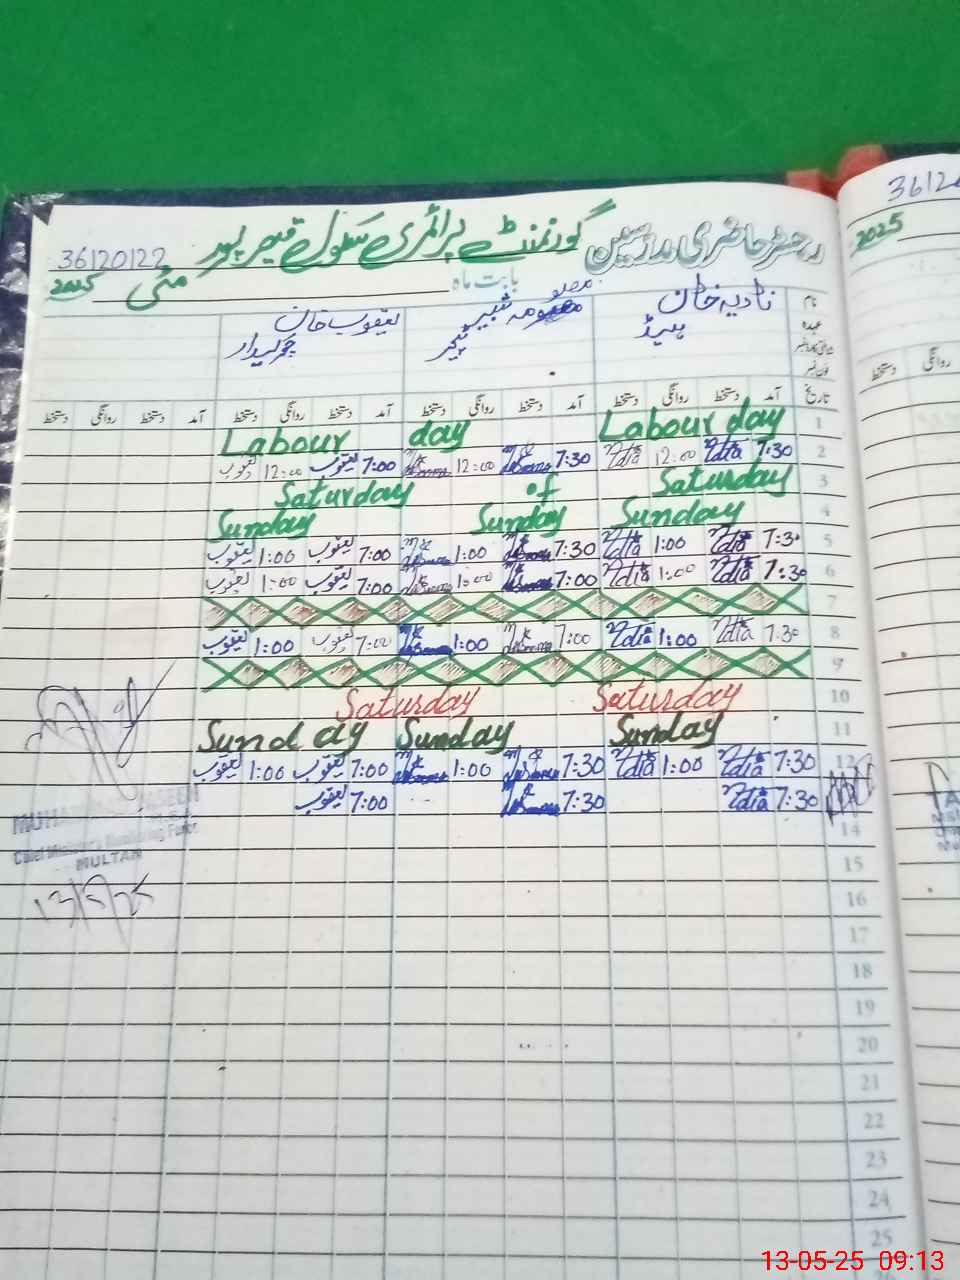 رجسٹر حاضری مدرسین گورنمنٹ پرائمری سکول قیصر پور 36120122
بابت ماہ مئی 2025
نام نادیہ خان معصومہ شبیر یعقوب خان
عہدہ ہیڈ ٹیچر چوکیدار
فون نمبر
تاریخ آمد دستخط روانگی دستخط آمد دستخط روانگی دستخط آمد دستخط روانگی دستخط آمد دستخط روانگی دستخط
1 Labour day Labour day
2 7:30 Nadia 12:00 Nadia 7:30 12:00 7:00 یعقوب 12:00 یعقوب
3 Saturday of Saturday
4 Sunday Sunday Sunday
5 7:30 Nadia 1:00 Nadia 7:30 1:00 7:00 یعقوب 1:00 یعقوب
6 7:30 Nadia 1:00 Nadia 7:00 1:00 7:00 یعقوب 1:00 یعقوب
7
8 7:30 Nadia 1:00 Nadia 7:00 1:00 7:00 یعقوب 1:00 یعقوب
9
10 Saturday Saturday
11 Sunday Sunday Sunday
12 7:30 Nadia 1:00 Nadia 7:30 1:00 7:00 یعقوب 1:00 یعقوب
7:30 Nadia 7:30 7:00 یعقوب
14
15
16
17
18
19
20
21
22
23
24
25
MUHAMMAD YASEEN
Chief Minister's Monitoring Force
MULTAN
13/5/25
3612
2025
روانگی
دستخط
13-05-25 09:13